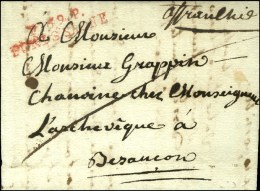 affranchie
A Monsieur
Monsieur Grappin
Chanoine chez Monseigneur
L'archevêque à
Besançon